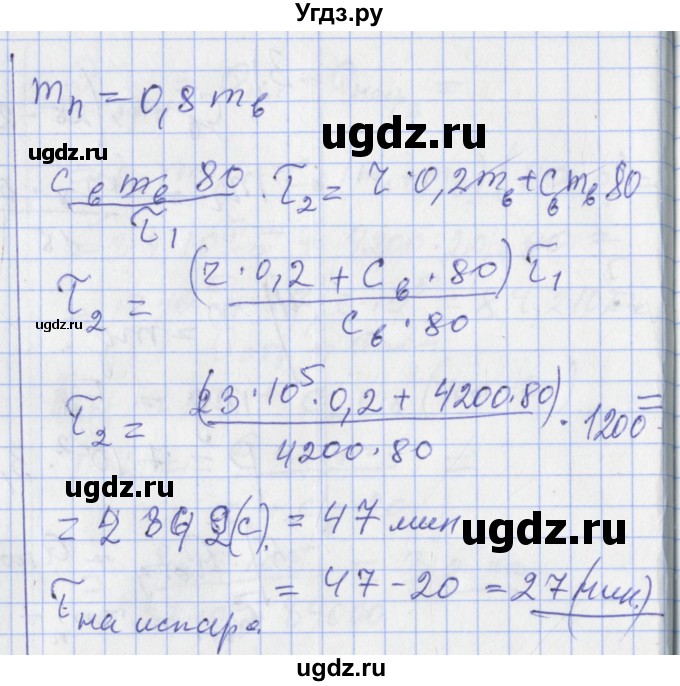 Угдз.ру
mп = 0,8 mв
ugdz.ru
ugdz.ru
cв mв 80 / τ1 · τ2 = r · 0,2 mв + cв mв 80
τ2 = (r · 0,2 + cв · 80) τ1 / cв · 80
ugdz.ru
τ2 = (23 · 10⁵ · 0,2 + 4200 · 80) / 4200 · 80 · 1200 =
ugdz.ru
= (с) = 47 мин
ugdz.ru
τ на испар. = 47 - 20 = 27 (мин.)
ugdz.ru
ugdz.ru